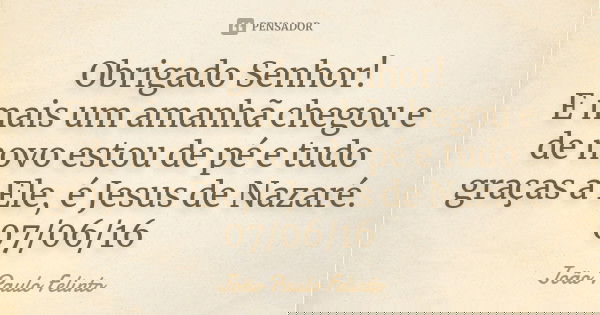 PENSADOR
Obrigado Senhor!
E mais um amanhã chegou e
de novo estou de pé e tudo
graças a Ele, é Jesus de Nazaré.
07/06/16
João Paulo Felinto